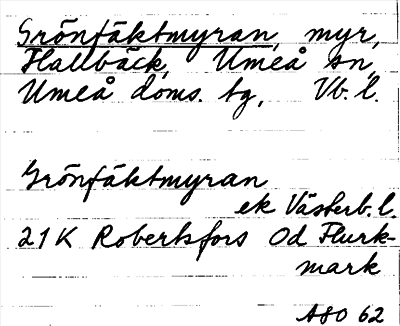 Grönfäktmyran, myr,
Flallbäck, Umeå sn,
Umeå doms. tg, Vb. l.
Grönfäktmyran
ek Västerb. l.
21K Robertsfors 0d Flurk-
mark
A80 62